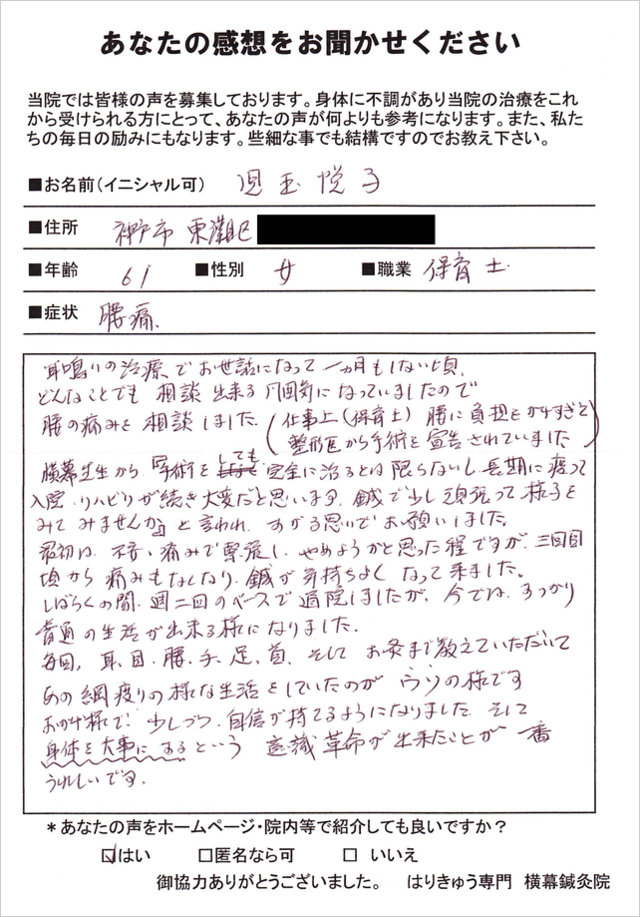 あなたの感想をお聞かせください
当院では皆様の声を募集しております。身体に不調があり当院の治療をこれ
から受けられる方にとって、あなたの声が何よりも参考になります。また、私た
ちの毎日の励みにもなります。些細な事でも結構ですのでお教え下さい。
■お名前(イニシャル可) 児玉悦子
■住所 神戸市 東灘区
■年齢 61 ■性別 女 ■職業 保育士
■症状 腰痛
耳鳴りの治療でお世話になって一ヵ月もしない頃、
どんなことでも 相談出来る雰囲気になっていましたので
腰の痛みを相談しました。(仕事上(保育士) 腰に負担をかけすぎて
整形医から手術を宣告されていました)
横幕先生から、「手術をしても完全に治るとは限らないし、長期に渡って
入院、リハビリが続き大変だと思います。鍼で少し頑張って様子を
みてみませんか」と言われ、すがる思いでお願いしました。
最初は、不安、痛みで緊張し、やめようかと思った程ですが、三回目
頃から痛みもなくなり、鍼が気持ちよくなって来ました。
しばらくの間、週二回のペースで通院しましたが、今では、すっかり
普通の生活が出来る様になりました。
毎回、耳、目、腰、手、足、首、そして お灸まで教えていただいて
あの綱渡りの様な生活をしていたのが ウソの様です
おかげ様で、少しづつ、自信が持てるようになりました。そして
身体を大事にするという 意識革命が出来たことが一番
うれしいです。
*あなたの声をホームページ・院内等で紹介しても良いですか?
☑はい □匿名なら可 □ いいえ
御協力ありがとうございました。 はりきゅう専門 横幕鍼灸院